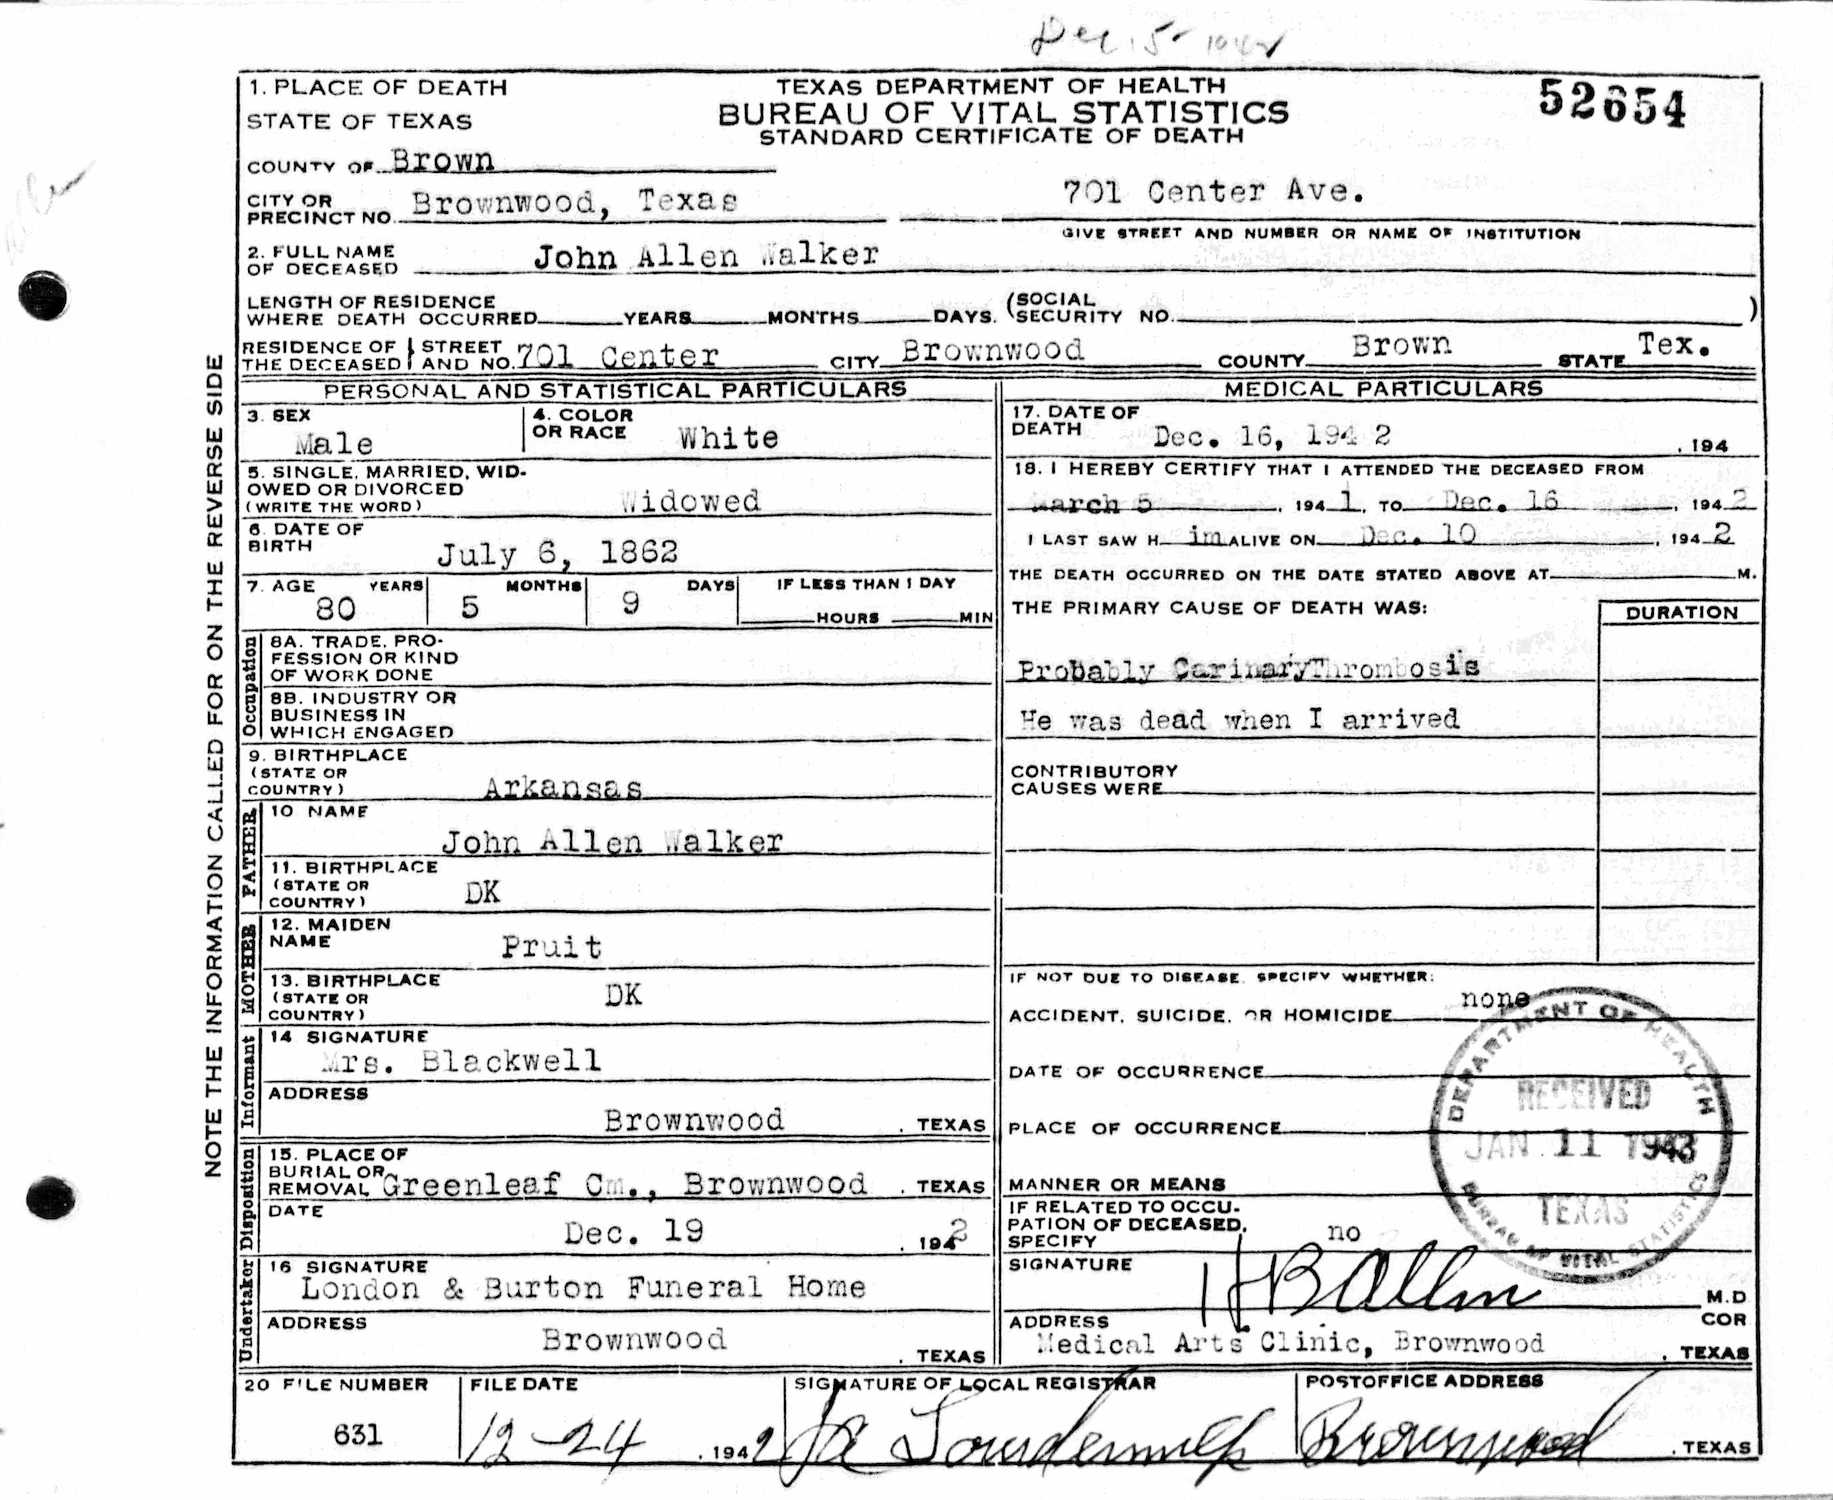 Dec. 5- 1942
1. PLACE OF DEATH
STATE OF TEXAS
TEXAS DEPARTMENT OF HEALTH
BUREAU OF VITAL STATISTICS
STANDARD CERTIFICATE OF DEATH
52654
COUNTY OF Brown
CITY OR PRECINCT NO. Brownwood, Texas 701 Center Ave.
GIVE STREET AND NUMBER OR NAME OF INSTITUTION
2. FULL NAME OF DECEASED John Allen Walker
LENGTH OF RESIDENCE WHERE DEATH OCCURRED YEARS MONTHS DAYS. (SOCIAL SECURITY NO. )
RESIDENCE OF THE DECEASED } STREET AND NO. 701 Center CITY Brownwood COUNTY Brown STATE Tex.
NOTE THE INFORMATION CALLED FOR ON THE REVERSE SIDE
PERSONAL AND STATISTICAL PARTICULARS
3. SEX Male
4. COLOR OR RACE White
5. SINGLE, MARRIED, WIDOWED OR DIVORCED (WRITE THE WORD) Widowed
6. DATE OF BIRTH July 6, 1862
7. AGE YEARS 80 MONTHS 5 DAYS 9 IF LESS THAN 1 DAY HOURS MIN
Occupation
8A. TRADE, PROFESSION OR KIND OF WORK DONE
8B. INDUSTRY OR BUSINESS IN WHICH ENGAGED
9. BIRTHPLACE (STATE OR COUNTRY) Arkansas
FATHER
10 NAME John Allen Walker
11. BIRTHPLACE (STATE OR COUNTRY) DK
MOTHER
12. MAIDEN NAME Pruit
13. BIRTHPLACE (STATE OR COUNTRY) DK
Informant
14 SIGNATURE Mrs. Blackwell
ADDRESS Brownwood, TEXAS
Disposition
15. PLACE OF BURIAL OR REMOVAL Greenleaf Cm., Brownwood, TEXAS
DATE Dec. 19, 1942
Undertaker
16 SIGNATURE London & Burton Funeral Home
ADDRESS Brownwood, TEXAS
MEDICAL PARTICULARS
17. DATE OF DEATH Dec. 16, 194 2 , 194
18. I HEREBY CERTIFY THAT I ATTENDED THE DECEASED FROM
March 5, 194 1, TO Dec. 16, 194 2
I LAST SAW H im ALIVE ON Dec. 10, 194 2
THE DEATH OCCURRED ON THE DATE STATED ABOVE AT M.
THE PRIMARY CAUSE OF DEATH WAS: DURATION
Probably Carinary Thrombosis
He was dead when I arrived
CONTRIBUTORY CAUSES WERE
IF NOT DUE TO DISEASE, SPECIFY WHETHER:
ACCIDENT, SUICIDE, OR HOMICIDE none
DATE OF OCCURRENCE
PLACE OF OCCURRENCE
MANNER OR MEANS
IF RELATED TO OCCUPATION OF DECEASED, SPECIFY no
SIGNATURE H B Allen M.D COR
ADDRESS Medical Arts Clinic, Brownwood, TEXAS
DEPARTMENT OF HEALTH
RECEIVED
JAN 11 1943
TEXAS
BUREAU OF VITAL STATISTICS
20 FILE NUMBER 631
FILE DATE 12-24, 1942
SIGNATURE OF LOCAL REGISTRAR
POSTOFFICE ADDRESS Brownwood, TEXAS